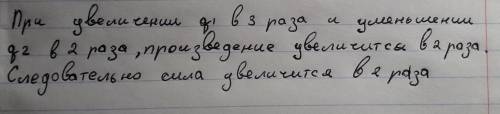 При увеличении q1 в 3 раза и уменьшении
q2 в 2 раза, произведение увеличится в 2 раза.
Следовательно сила увеличится в 2 раза